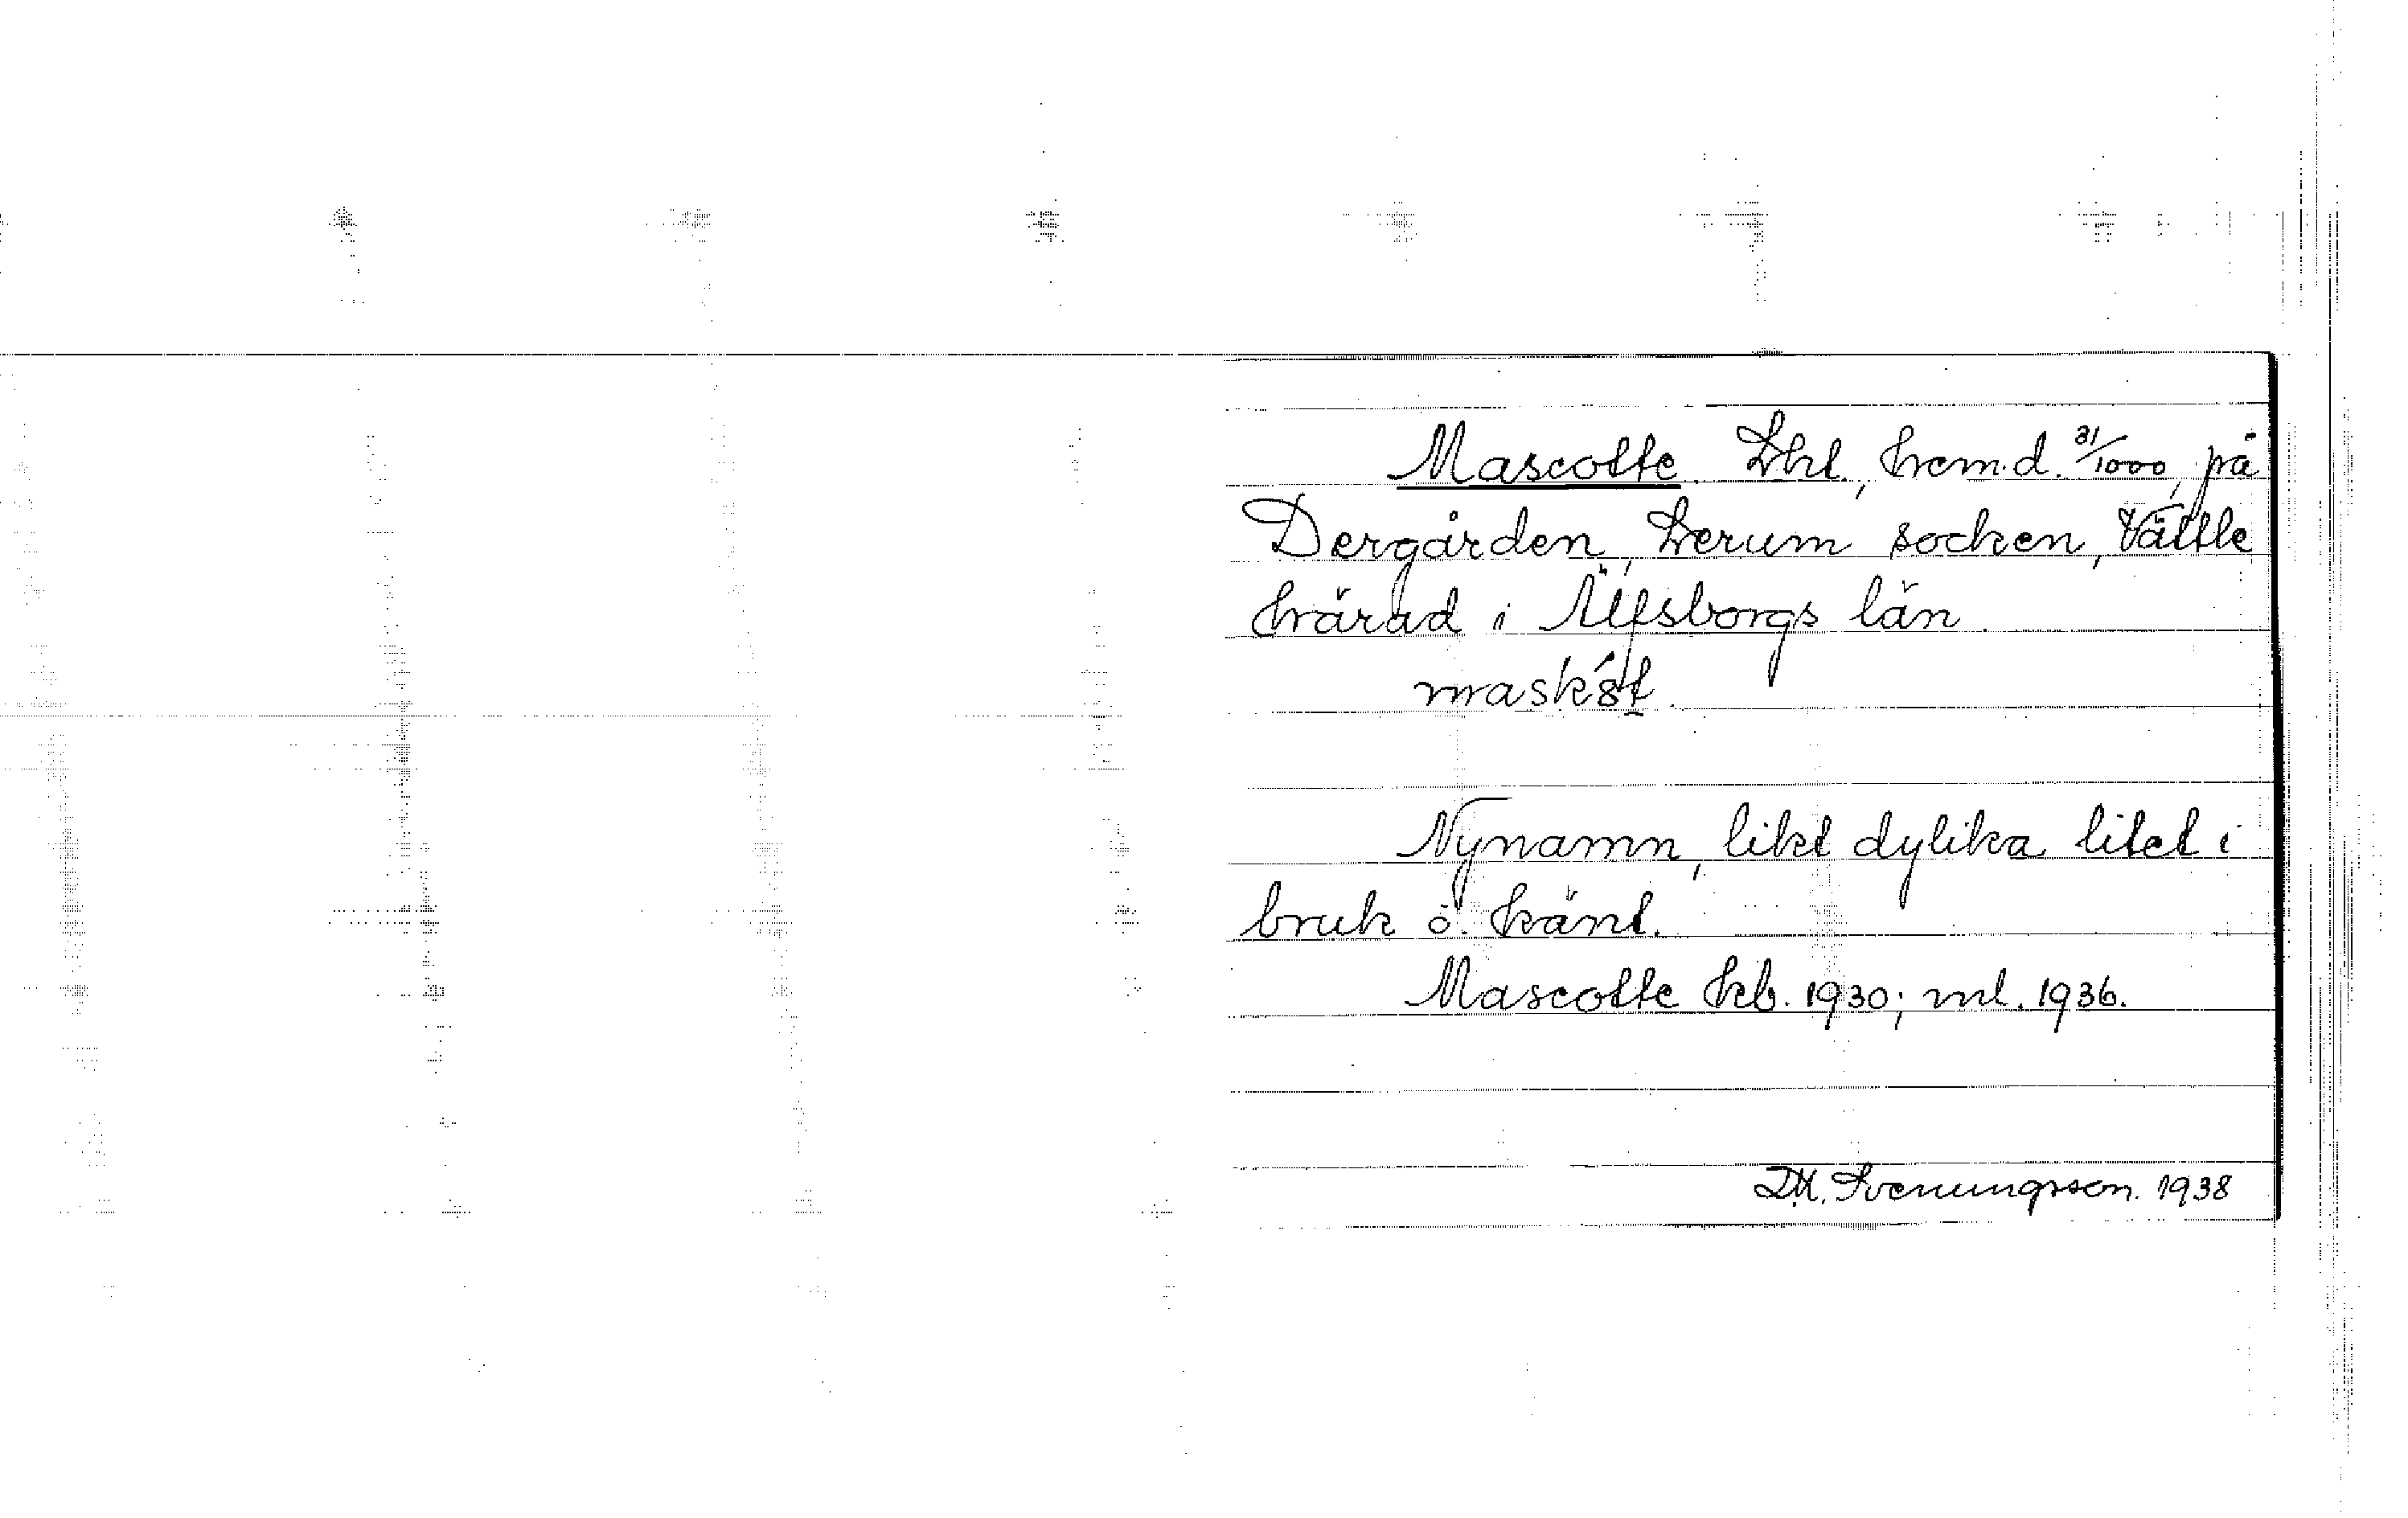 Mascotte Lht, hemd. 31/1000, på
Dergården, Lerum socken, Vättle
härad i Älfsborgs län.
Nynamn, likt dylika litet i
bruk o. känt.
Mascotte kb. 1930; ml. 1936.
D.M. Svenungsson. 1938